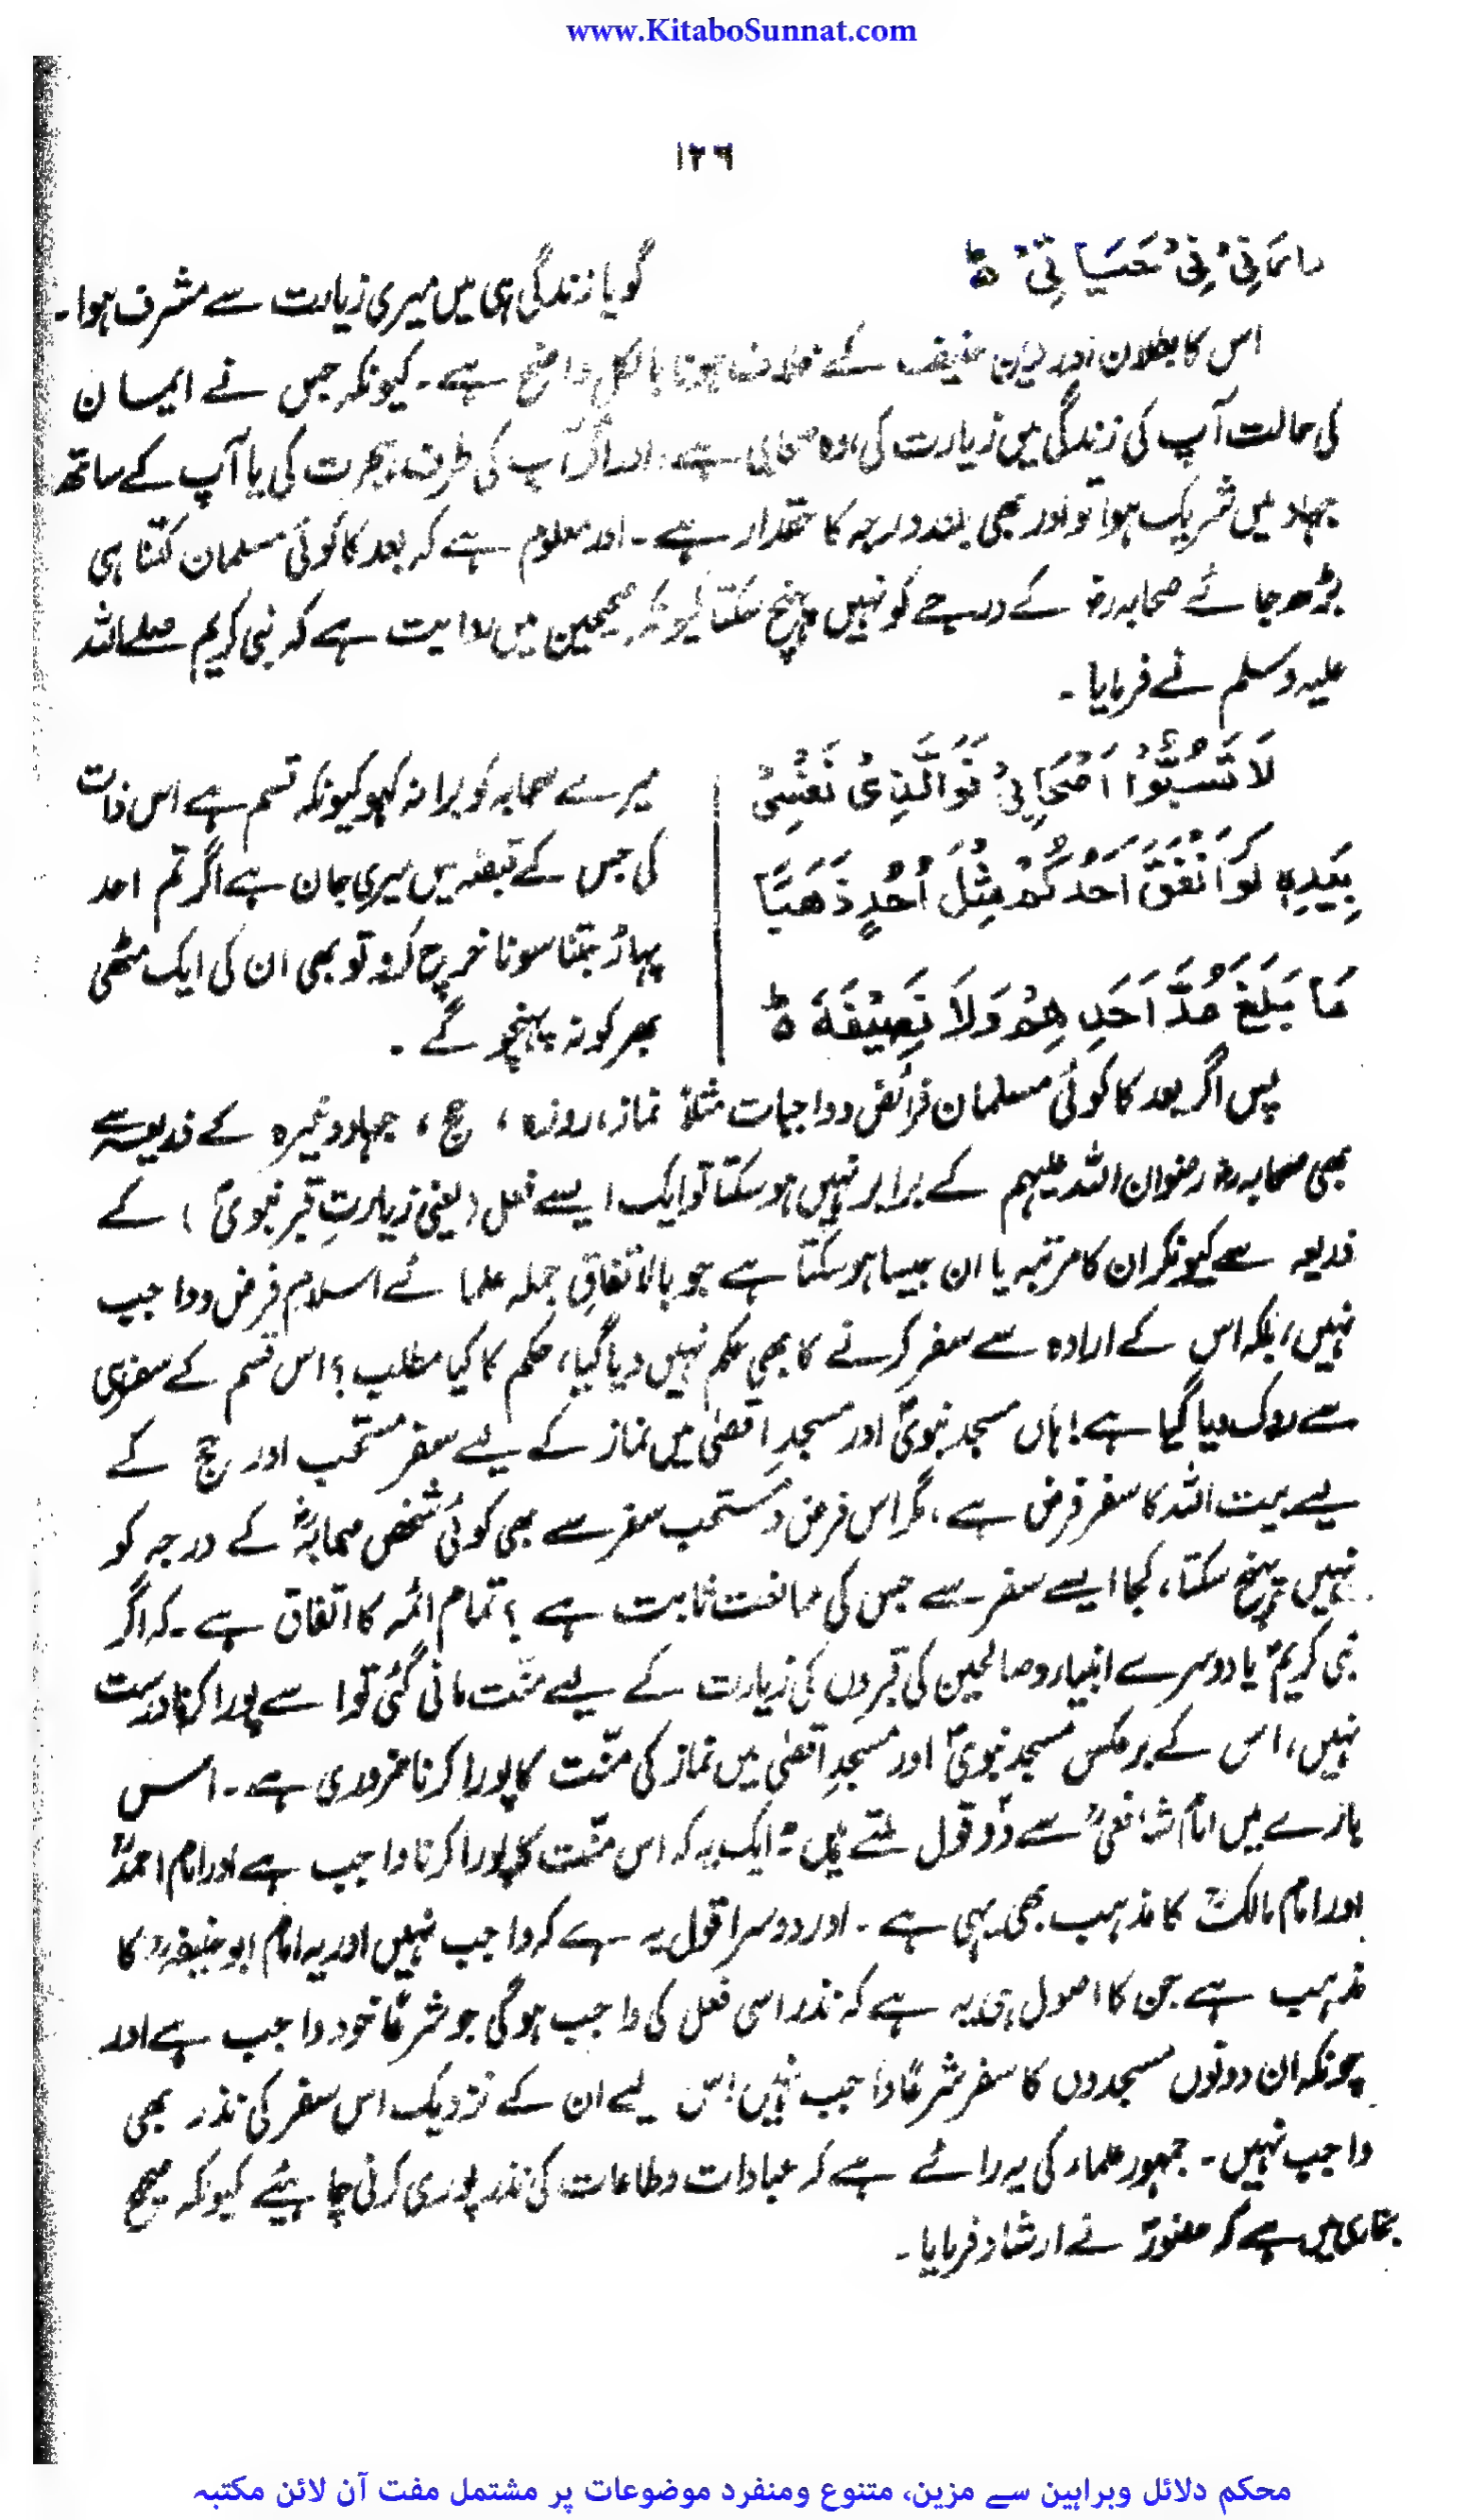 www.KitaboSunnat.com
۱۲۶
زَارَنِیْ فِیْ حَیَاتِیْ ط
گویا زندگی ہی میں میری زیارت سے مشرف ہوا۔
اس کا بطلان اور دین حنیف کے خلاف ہونا بالکل واضح ہے۔ کیونکہ جس نے ایمان
کی حالت آپ کی زندگی میں زیارت کی وہ صحابی ہے، اور اگر آپ کی طرف ہجرت کی یا آپ کے ساتھ
جہاد میں شریک ہوا تو اور بھی بلند درجہ کا حقدار ہے۔ اور معلوم ہے کہ بعد کا کوئی مسلمان کتنا ہی
بڑھ جائے صحابہ رضؓ کے درجے کو نہیں پہنچ سکتا کیونکہ صحیحین میں روایت ہے کہ نبی کریم صلے اللہ
علیہ وسلم نے فرمایا۔
لَا تَسُبُّوْا اَصْحَابِیْ فَوَالَّذِیْ نَفْسِیْ
بِیَدِہٖ لَوْ اَنْفَقَ اَحَدُکُمْ مِثْلَ اُحُدٍ ذَھَبًا
مَا بَلَغَ مُدَّ اَحَدِھِمْ وَلَا نَصِیْفَہٗ ط
میرے صحابہ کو برا نہ کہو کیونکہ قسم ہے اس ذات
کی جس کے قبضہ میں میری جان ہے اگر تم احد
پہاڑ جتنا سونا خرچ کرو تو بھی ان کی ایک مٹھی
بھر کو نہ پہنچو گے۔
پس اگر بعد کا کوئی مسلمان فرائض و واجبات مثلاً نماز، روزہ، حج، جہاد وغیرہ کے ذریعہ سے
بھی صحابہ رضؓ رضوان اللہ علیہم کے برابر نہیں ہو سکتا تو ایک ایسے فعل (یعنی زیارتِ قبر نبویؐ) کے
ذریعہ سے کیونکر ان کا مرتبہ یا ان جیسا ہو سکتا ہے جو بالاتفاقِ جملہ علمائے اسلام فرض و واجب
نہیں، بلکہ اس کے ارادہ سے سفر کرنے کا بھی حکم نہیں دیا گیا، حکم کا کیا مطلب؟ اس قسم کے سفر ہی
سے روک دیا گیا ہے! ہاں مسجد نبویؐ اور مسجدِ اقصیٰ میں نماز کے لیے سفر مستحب اور حج کے
لیے بیت اللہ کا سفر فرض ہے، مگر اس فرض و مستحب سفر سے بھی کوئی شخص صحابہؓ کے درجہ کو
نہیں پہنچ سکتا، کجا ایسے سفر سے جس کی ممانعت ثابت ہے؟ تمام ائمہ کا اتفاق ہے۔ کہ اگر
نبی کریمؐ یا دوسرے انبیاء و صالحین کی قبروں کی زیارت کے لیے منّت مانی گئی تو اسے پورا کرنا درست
نہیں، اس کے برعکس مسجد نبویؐ اور مسجدِ اقصیٰ میں نماز کی منّت کا پورا کرنا ضروری ہے۔ اس
بارے میں امام شافعیؒ سے دو قول ملتے ہیں: ایک یہ کہ اس منّت کا پورا کرنا واجب ہے اور امام احمدؒ
اور امام مالکؒ کا مذہب بھی یہی ہے۔ اور دوسرا قول یہ ہے کہ واجب نہیں اور یہ امام ابو حنیفہؒ کا
مذہب ہے جن کا اصول ہی یہ ہے کہ نذر اسی فعل کی واجب ہوگی جو شرعًا خود واجب ہے اور
چونکہ ان دونوں مسجدوں کا سفر شرعًا واجب نہیں اس لیے ان کے نزدیک اس سفر کی نذر بھی
واجب نہیں۔ جمہور علماء کی یہ رائے ہے کہ عبادات و طاعات کی نذر پوری کرنی چاہیئے کیونکہ صحیح
بخاری میں ہے کہ حضورؐ نے ارشاد فرمایا۔
محکم دلائل وبراہین سے مزین، متنوع ومنفرد موضوعات پر مشتمل مفت آن لائن مکتبہ